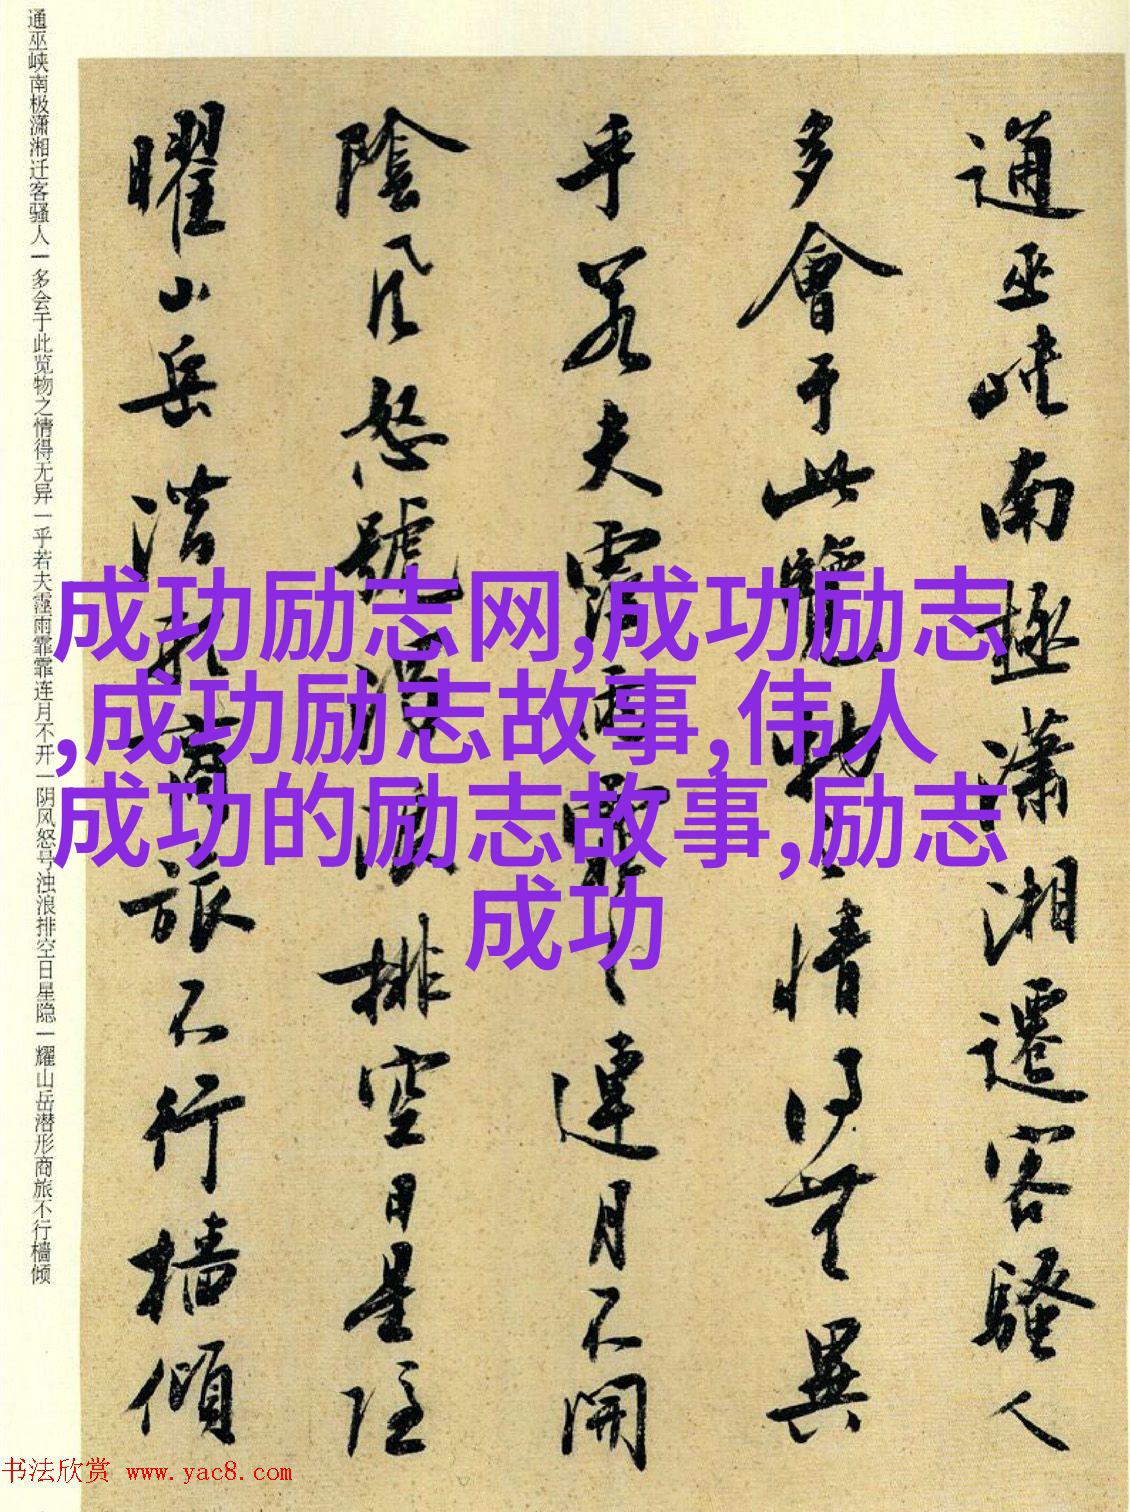 通巫峡南極瀟湘遷客騷人
多會于此覽物之情得無異
乎若夫霪雨霏々連月不開
陰風怒號濁浪排空日星隱
曜山岳潛形商旅不行檣傾
通巫峡南极潇湘迁客骚人一多会于此览物之情得无异一乎若夫霪雨霏霏连月不开一阴风怒号浊浪排空日星隐一耀山岳潜形商旅不行樯倾
成功励志网,成功励志
,成功励志故事,伟人
成功的励志故事,励志
成功
书法欣赏 www.yac8.com